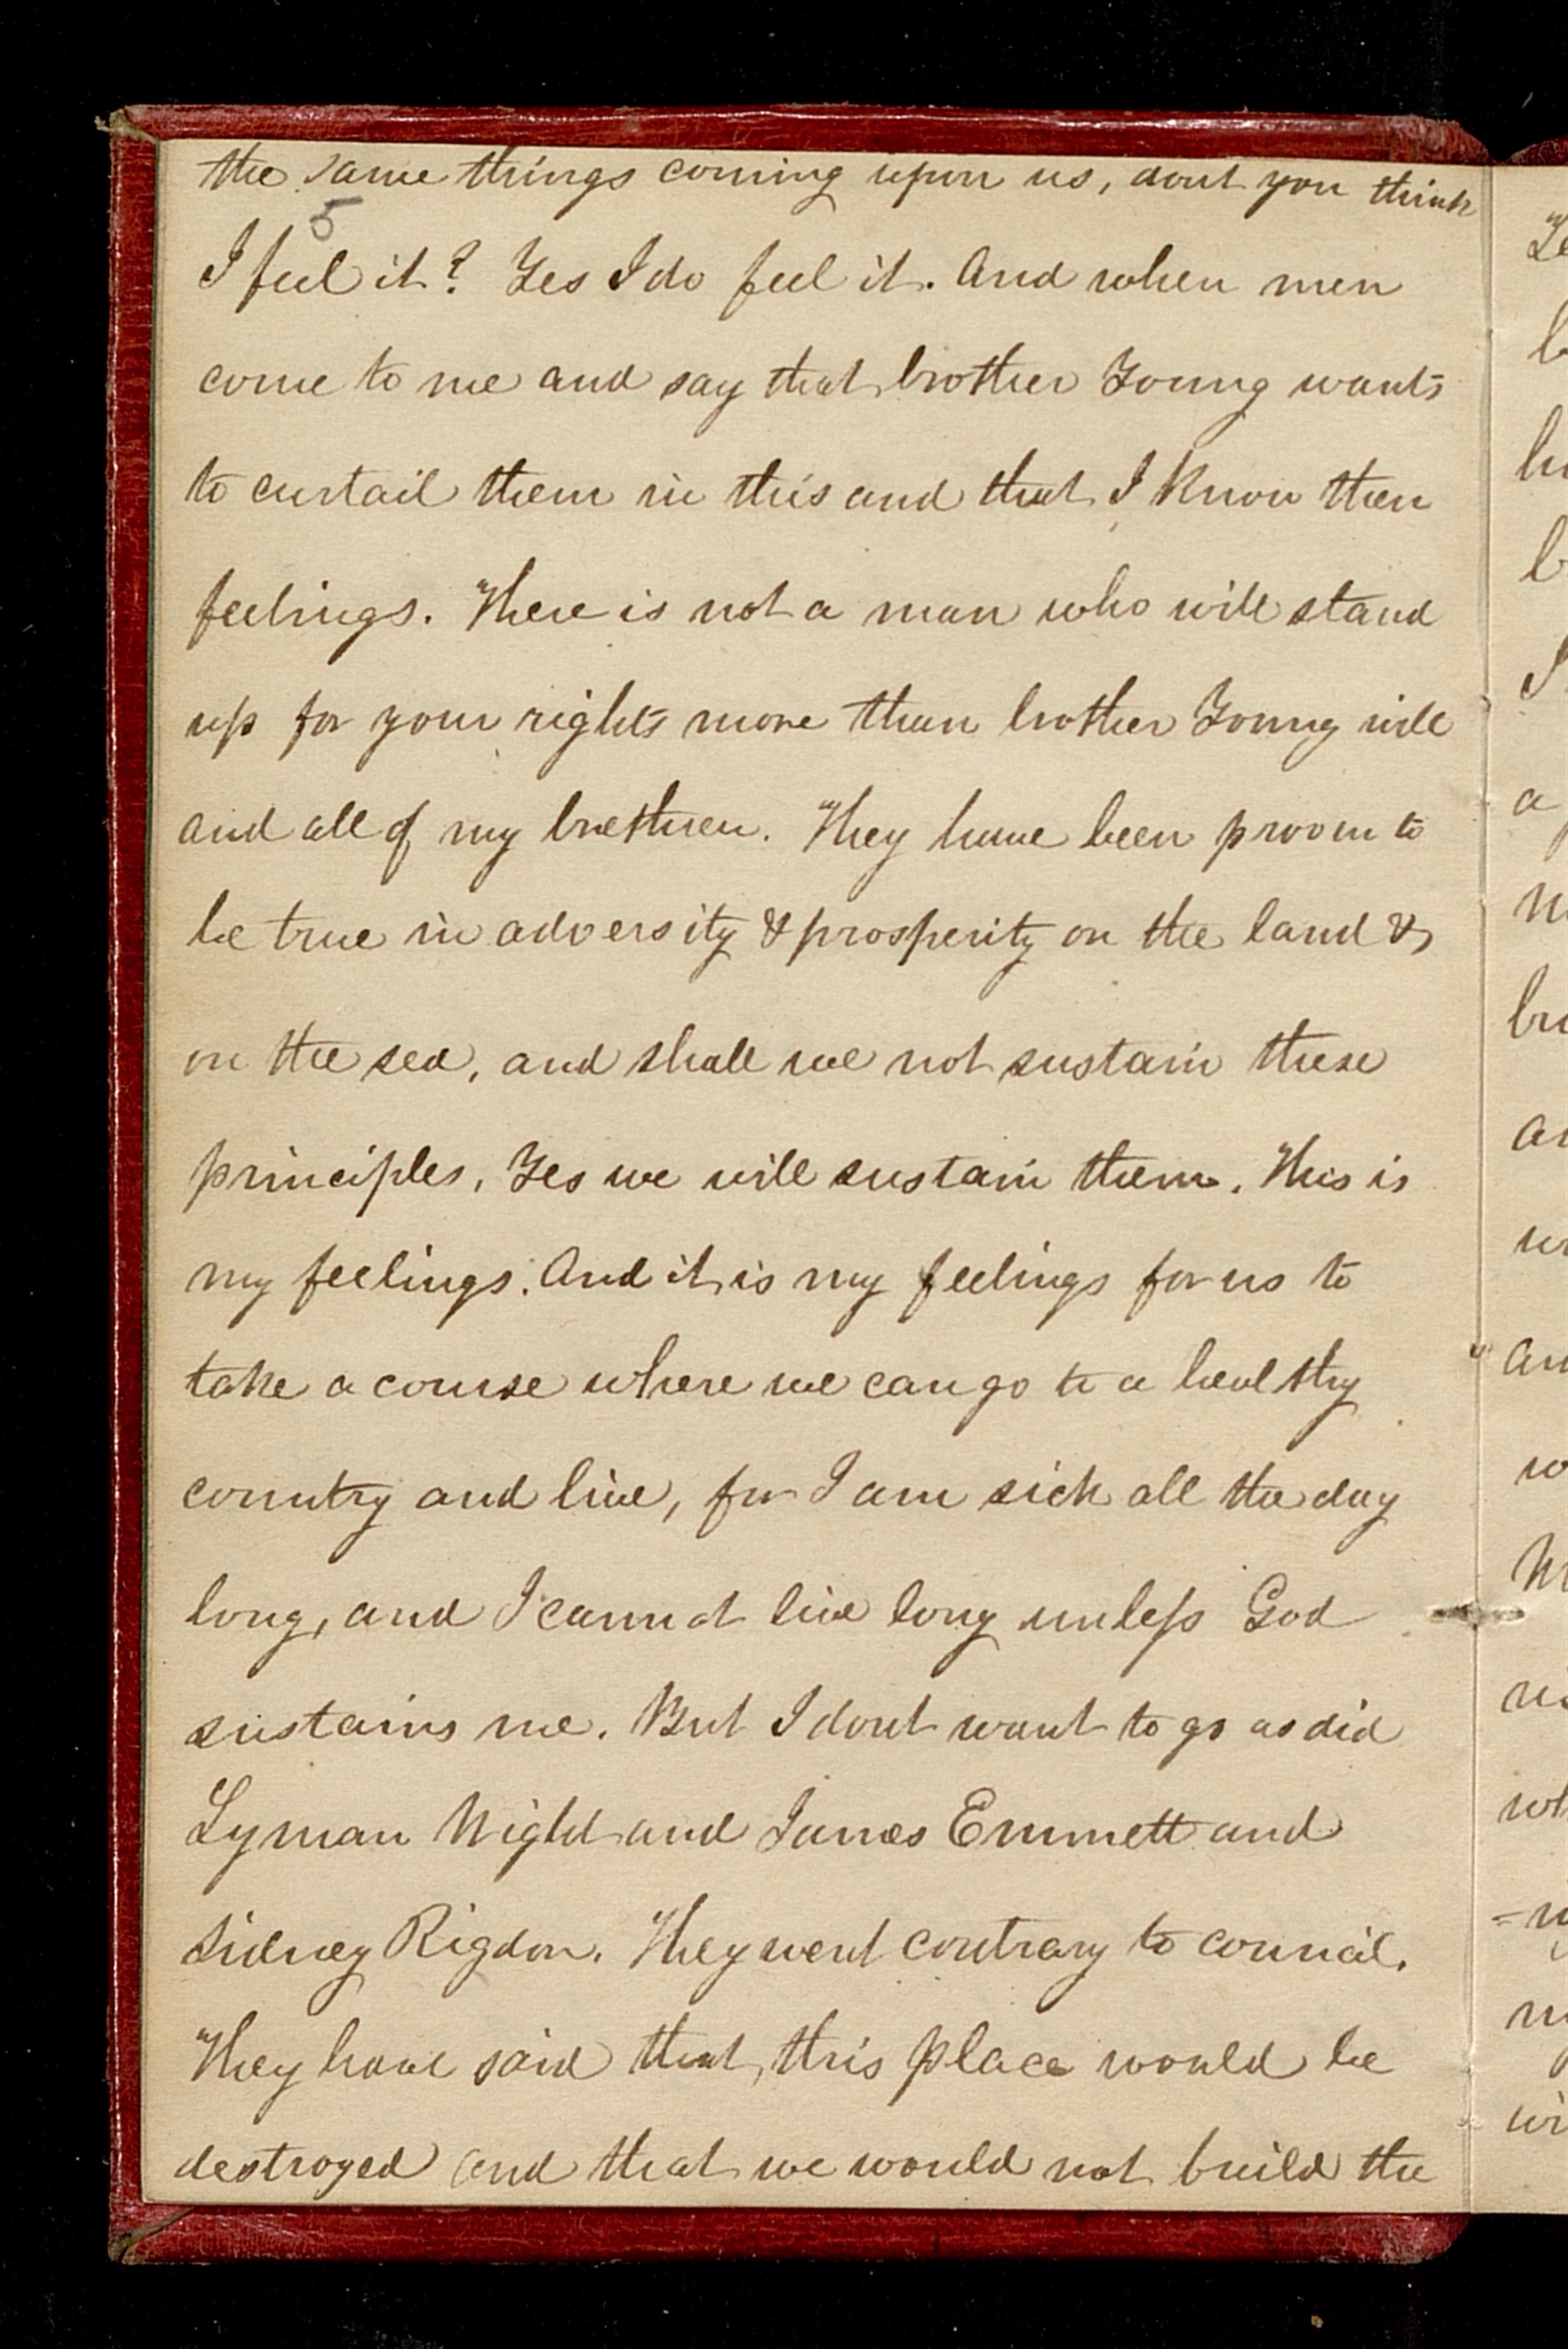 the same things coming upon us, dont you think
5
I feel it? Yes I do feel it. And when men
come to me and say that brother Young wants
to curtail them in this and that I know then
feelings. There is not a man who will stand
up for your rights more than brother Young will
and all of my brethren. They have been proom to
be true in adversity & prosperity on the land &
on the sea, and shall we not sustain these
principles, Yes we will sustain them. This is
my feelings. And it is my feelings for us to
take a course where we can go to a healthy
country and live, for I am sick all the day
long, and I cannot live long unless God
sustains me. But I dont want to go as did
Lyman Wight and James Emmett and
Sidney Rigdon. They went contrary to council.
They have said that this place would be
destroyed and that we would not build the